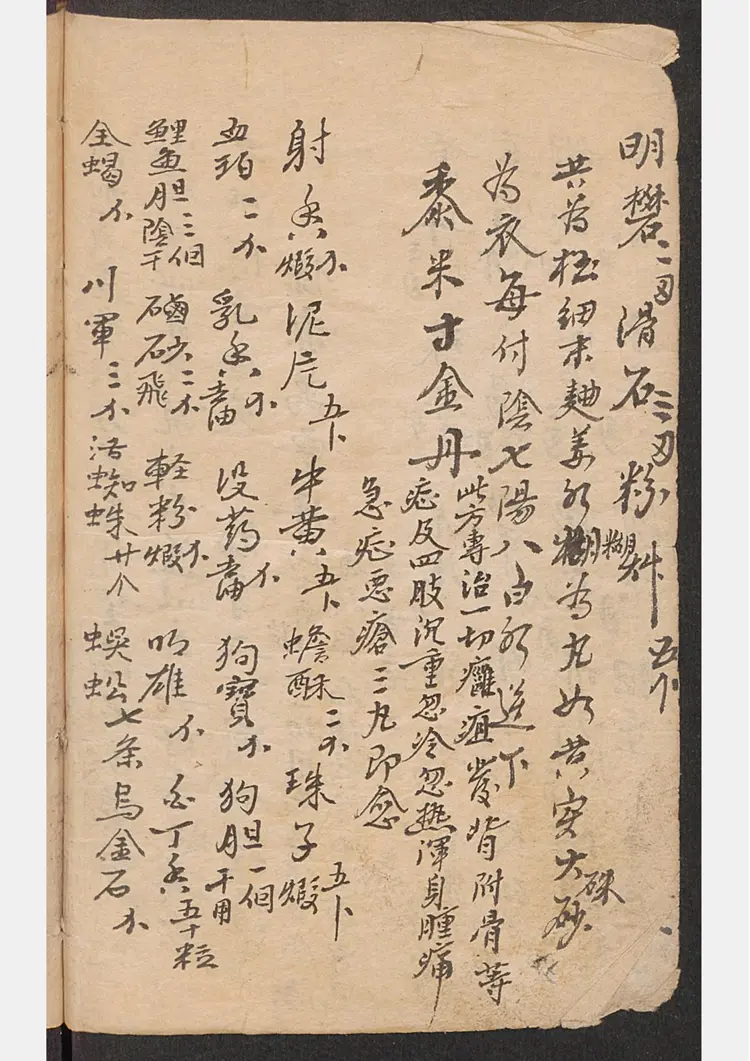 明礬二刄滑石三刄粉草五个
共為極細末麯姜水糊為丸如芡实大硃砂
為衣每付陰七陽八白水送下
黍米寸金丹
此方專治一切癰疽發背附骨等
症及四肢沉重忽冷忽熱渾身腫痛
急症悪瘡三丸即愈
射香煅 泥片五卜 牛黄五卜 蟾酥二个 珠子煅五卜
血珀二个 乳香 没药 狗寳 狗胆一個干用
鯉魚胆三個陰干 硇砂二个飛 軽粉煅 明雄 白丁香五十粒
全蝎 川軍三个 活蜘蛛廿个 蜈蚣七条 烏金石